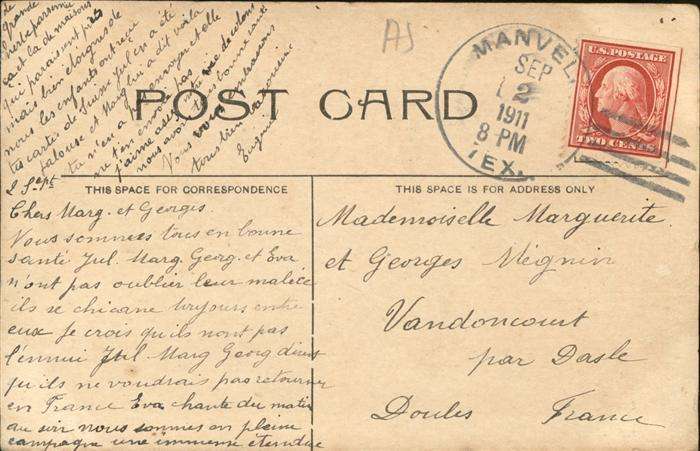 AS
MANVEL
SEP
2
1911
8 PM
TEX.
U.S. POSTAGE
TWO CENTS
POST CARD
THIS SPACE FOR CORRESPONDENCE
THIS SPACE IS FOR ADDRESS ONLY
2 Sept
Chers Marg. et Georges.
Vous sommes tous en bonne
santé Jul. Marg. Georg. et Eva
n'ont pas oublier leur malice
ils se chicane toujours entre
eux Je crois qu'ils nont pas
l'ennui Jul Marg Georg disent
qu'ils ne voudrais pas retourner
en France Eva chante du matin
au soir nous sommes en pleine
campagne une immense étendue
grande
et la de maisons
qui paraissent pas
mais bien éloignés de
nous les enfants ont reçu
les cartes de Jul en a été
jalouse et Marg lui a dit voila
tu n'en a pas
ne t'en envoie pas et elle
j'aime
nous avons
Vous
tous bien
Eugénie
Mademoiselle Marguerite
et Georges Mégnin
Vandoncourt
par Dasle
Doules France